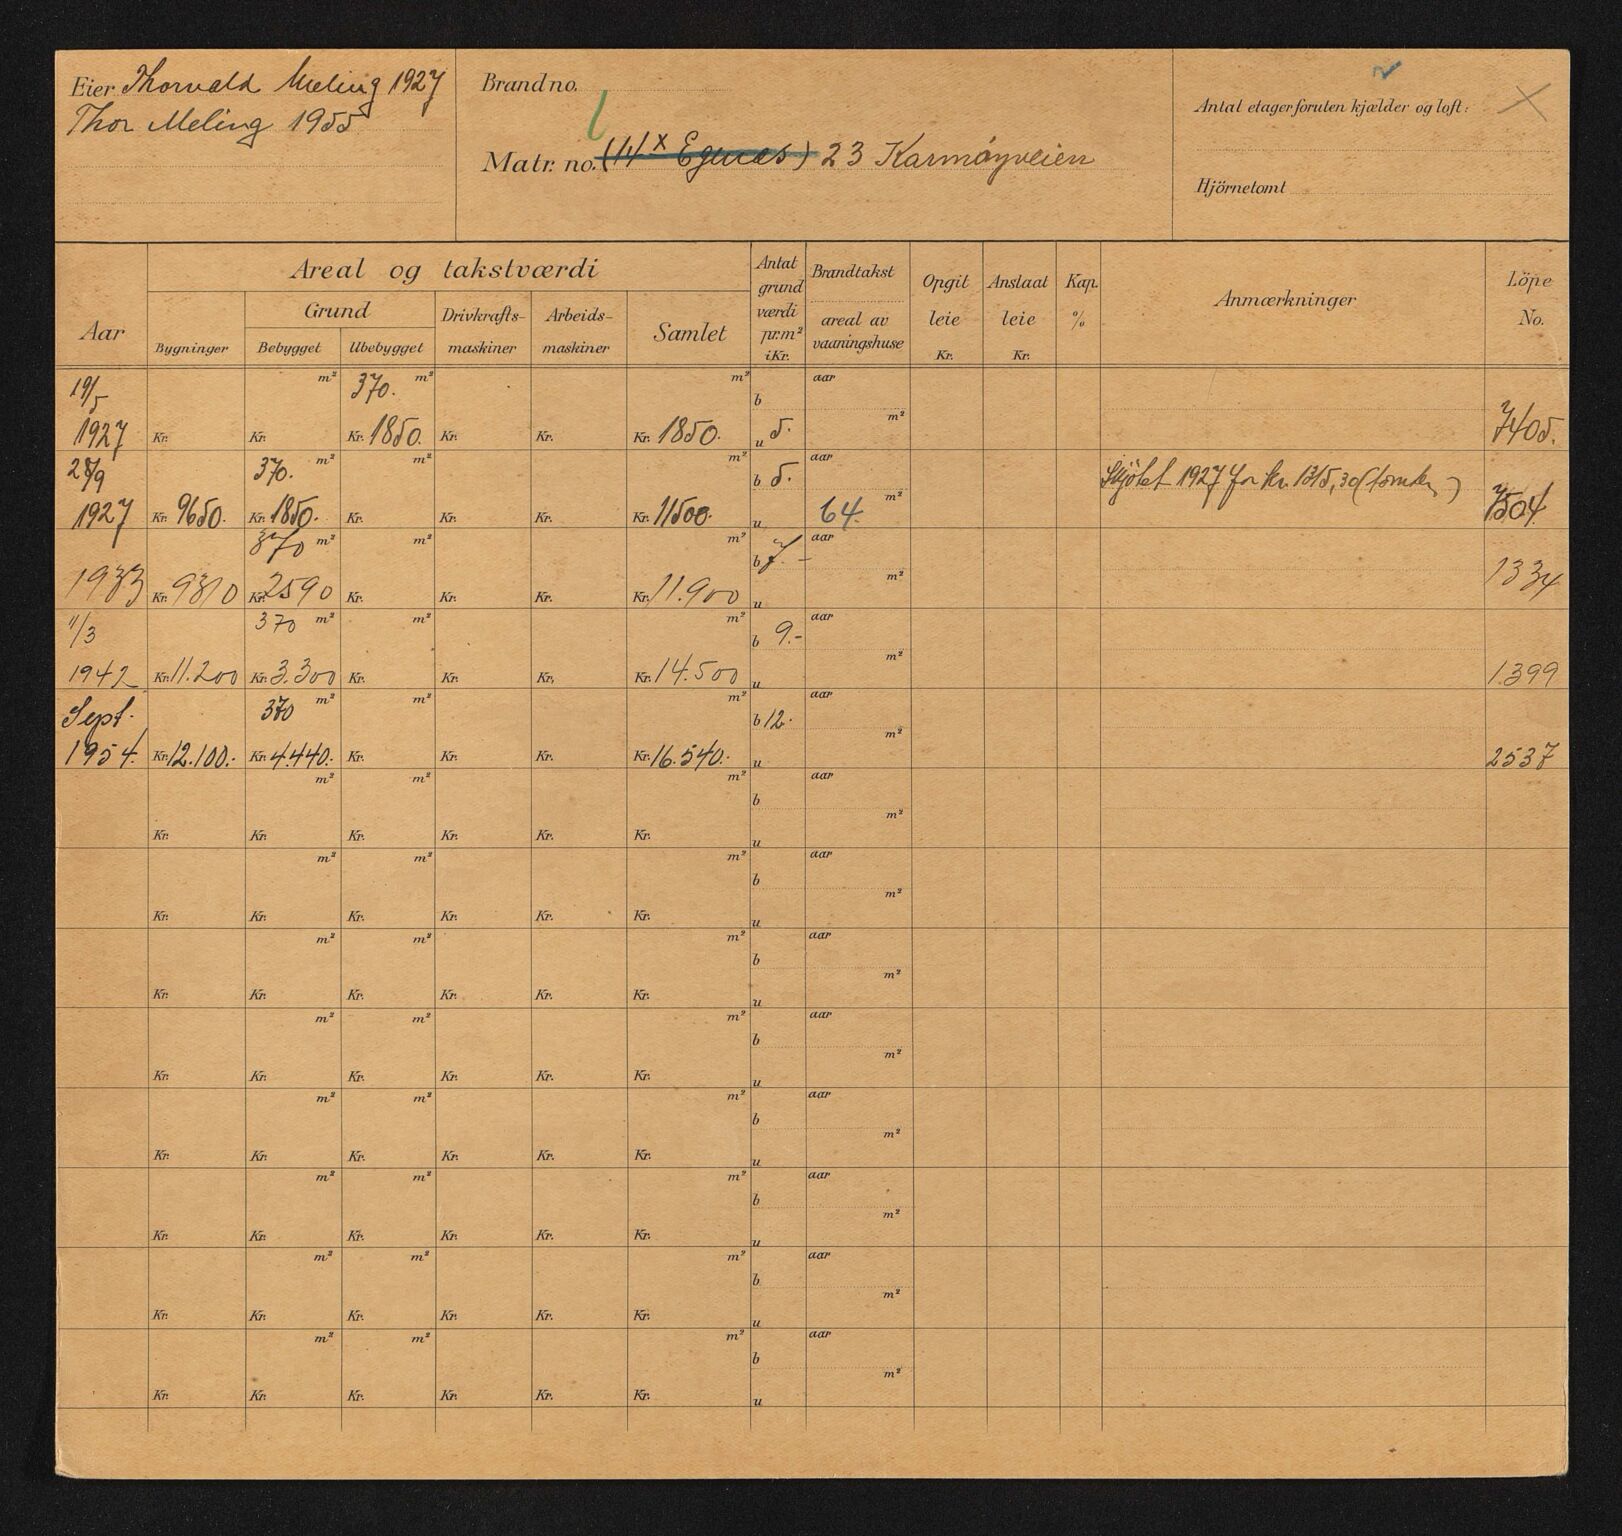 Eier Thorvald Meling 1927
Thor Meling 1955
Brand no.
Matr. no. (14x Egenæs) 23 Karmøyveien
Antal etager foruten kjælder og loft:
Hjörnetomt
Areal og takstværdi
Aar
Bygninger
Grund
Bebygget
Ubebygget
Drivkrafts-
maskiner
Arbeids-
maskiner
Samlet
Antat
grund
værdi
pr. m²
i Kr.
Brandtakst
areal av
vaaningshuse
Opgit
leie
Kr.
Anslaat
leie
Kr.
Kap.
%
Anmærkninger
Löpe
No.
19/5 m² 370. m² m² b aar
1927 Kr. Kr. Kr. 1850. Kr. Kr. Kr. 1850. u 5. m² 7405.
370. m² m² m² b 5. aar Skjötet 1927 for kr. 1315,30
1927 Kr. 9650. Kr. 1850. Kr. Kr. Kr. Kr. 11500. u 64. m² 7504.
370 m² m² m² b 7.- aar
1933 Kr. 9310 Kr. 2590 Kr. Kr. Kr. Kr. 11.900 u m² 1334
11/3 370 m² m² m² b 9.- aar
1942 Kr. 11.200 Kr. 3.300 Kr. Kr. Kr. Kr. 14.500 u m² 1399
Sept. 370 m² m² m² b 12. aar
1954. Kr. 12.100.- Kr. 4.440.- Kr. Kr. Kr. Kr. 16.540.- u m² 2537
m² m² m² b aar
Kr. Kr. Kr. Kr. Kr. Kr. u m²
m² m² m² b aar
Kr. Kr. Kr. Kr. Kr. Kr. u m²
m² m² m² b aar
Kr. Kr. Kr. Kr. Kr. Kr. u m²
m² m² m² b aar
Kr. Kr. Kr. Kr. Kr. Kr. u m²
m² m² m² b aar
Kr. Kr. Kr. Kr. Kr. Kr. u m²
m² m² m² b aar
Kr. Kr. Kr. Kr. Kr. Kr. u m²
m² m² m² b aar
Kr. Kr. Kr. Kr. Kr. Kr. u m²
m² m² m² b aar
Kr. Kr. Kr. Kr. Kr. Kr. u m²